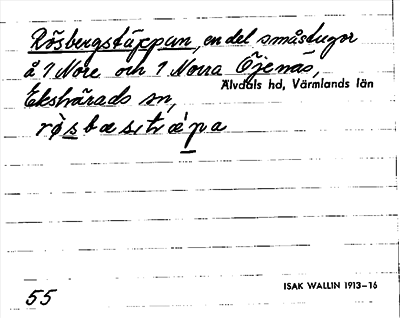 Rösbergstäppun, en del småstugor
å 1 Nore och 1 Norra Öjenäs,
Älvdals hd, Värmlands län
Ekshärads sn,
55
ISAK WALLIN 1913–16